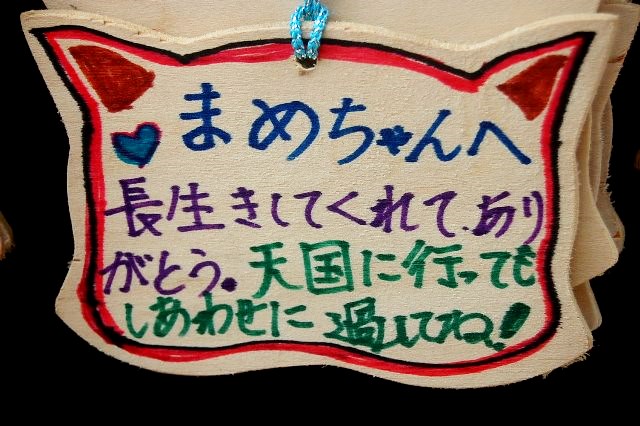 まめちゃんへ
長生きしてくれて、あり
がとう。天国に行っても
しあわせに過してね!